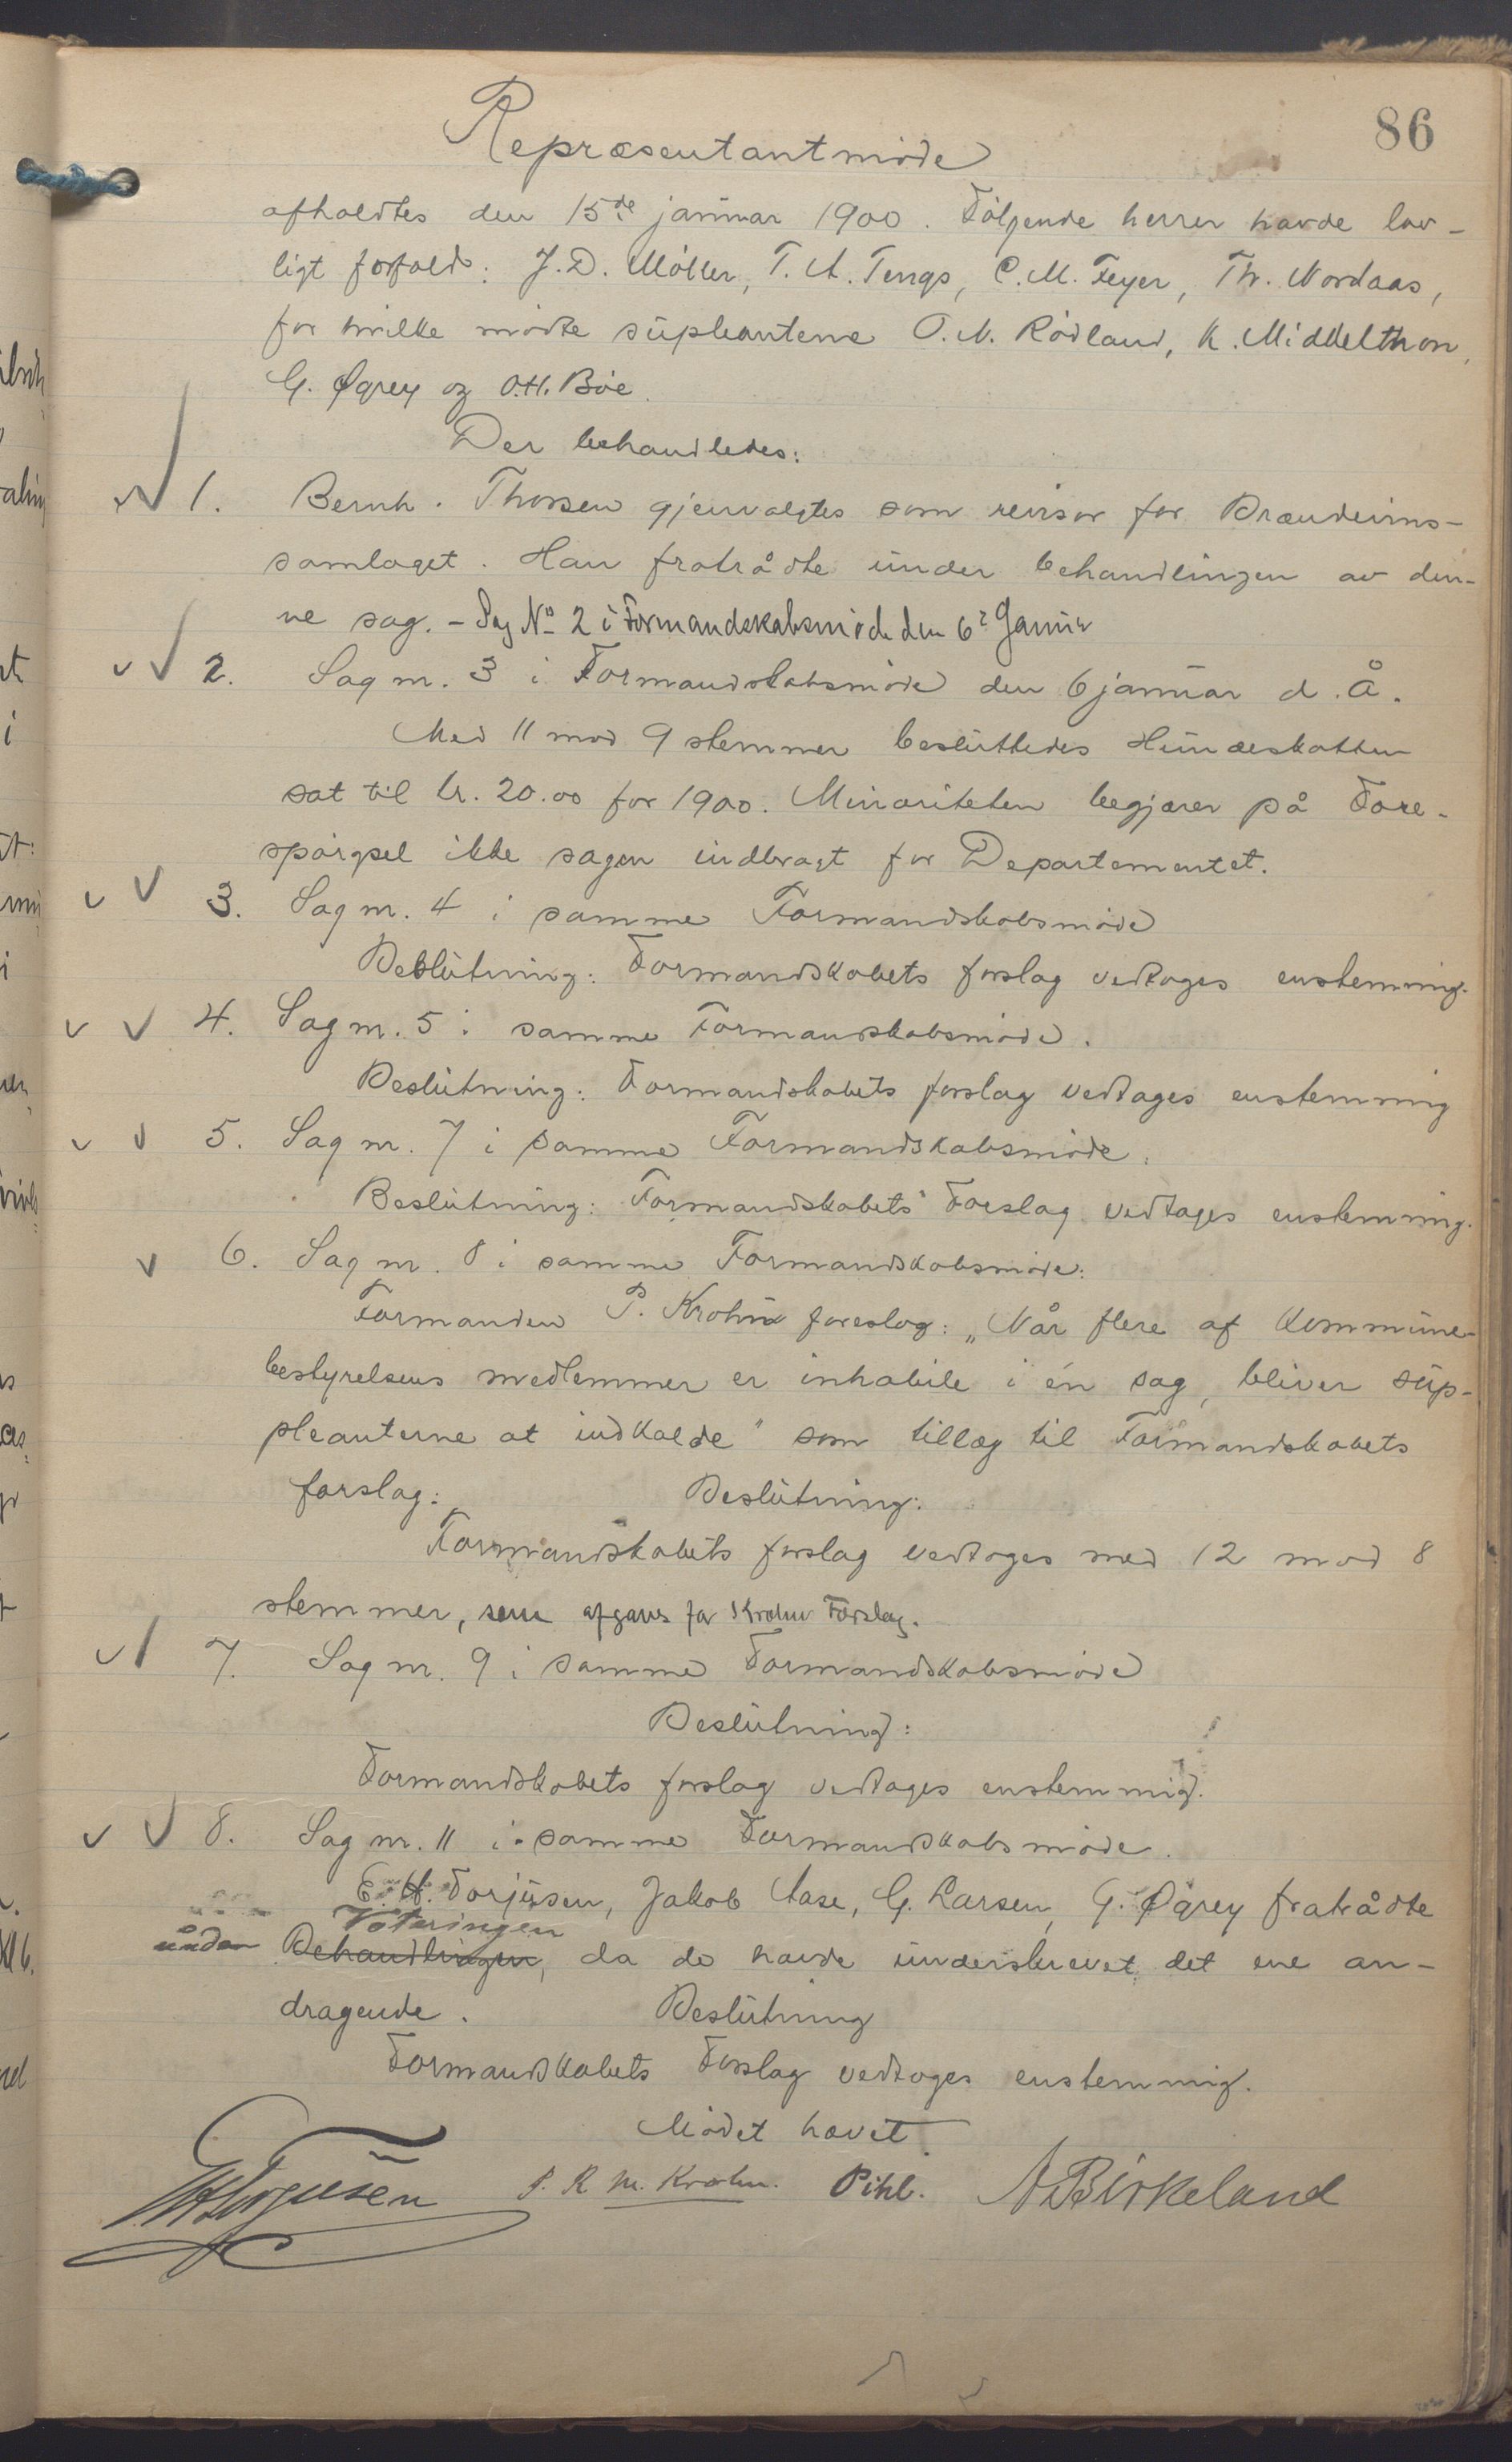 86
Repræsentantmøde
afholdtes den 15de januar 1900. Følgende herrer havde lov-
ligt forfald: J. D. Møller, T. A. Tengs, C. M. Feyer, Th. Nordaas,
for hvilke mødte supleanterne O. N. Rødland, K. Middelthon,
G. Øgrey og O. H. Bøe.
Der behandledes:
1. Bernh. Thorsen gjenvalgtes som revisor for Brændevins-
samlaget. Han fratrådte under behandlingen av den-
ne sag. - Sag No 2 i Formandskabsmøde den 6.
2. Sag nr. 3 i Formandskabsmøde den 6 januar d. Å.
Med 11 mod 9 stemmer besluttedes Hundeskatten
sat til kr. 20.00 for 1900. Minoriteten begjærer på Fore-
spørgsel ikke sagen indbragt for Departementet.
3. Sag nr. 4 i samme Formandskabsmøde
Beslutning: Formandskabets forslag vedtages enstemmig.
4. Sag nr. 5 i samme Formandskabsmøde.
Beslutning: Formandskabets forslag vedtages enstemmig
5. Sag nr. 7 i samme Formandskabsmøde.
Beslutning: Formandskabets Forslag vedtages enstemmig.
6. Sag nr. 8 i samme Formandskabsmøde:
Formanden P. Krohn foreslog: „Når flere af Kommune-
bestyrelsens medlemmer er inhabile i én sag, bliver sup-
pleanterne at indkalde" som tillæg til Formandskabets
forslag: Beslutning:
Formandskabets forslag vedtoges med 12 mod 8
stemmer, som afgaves for Krohns Forslag.
7. Sag nr. 9 i samme Formandskabsmøde
Beslutning:
Formandskabets forslag vedtages enstemmig.
8. Sag nr. 11 i samme Formandskabsmøde.
E. H. Torjusen, Jakob Aase, G. Larsen, G. Øgrey fratrådte
Voteringen
under Behandlingen, da de havde underskrevet det ene an-
dragende. Beslutning
Formandskabets Forslag vedtoges enstemmig.
Mødet hævet.
Torjusen P. R. M. Krohn. Pihl. A Birkeland